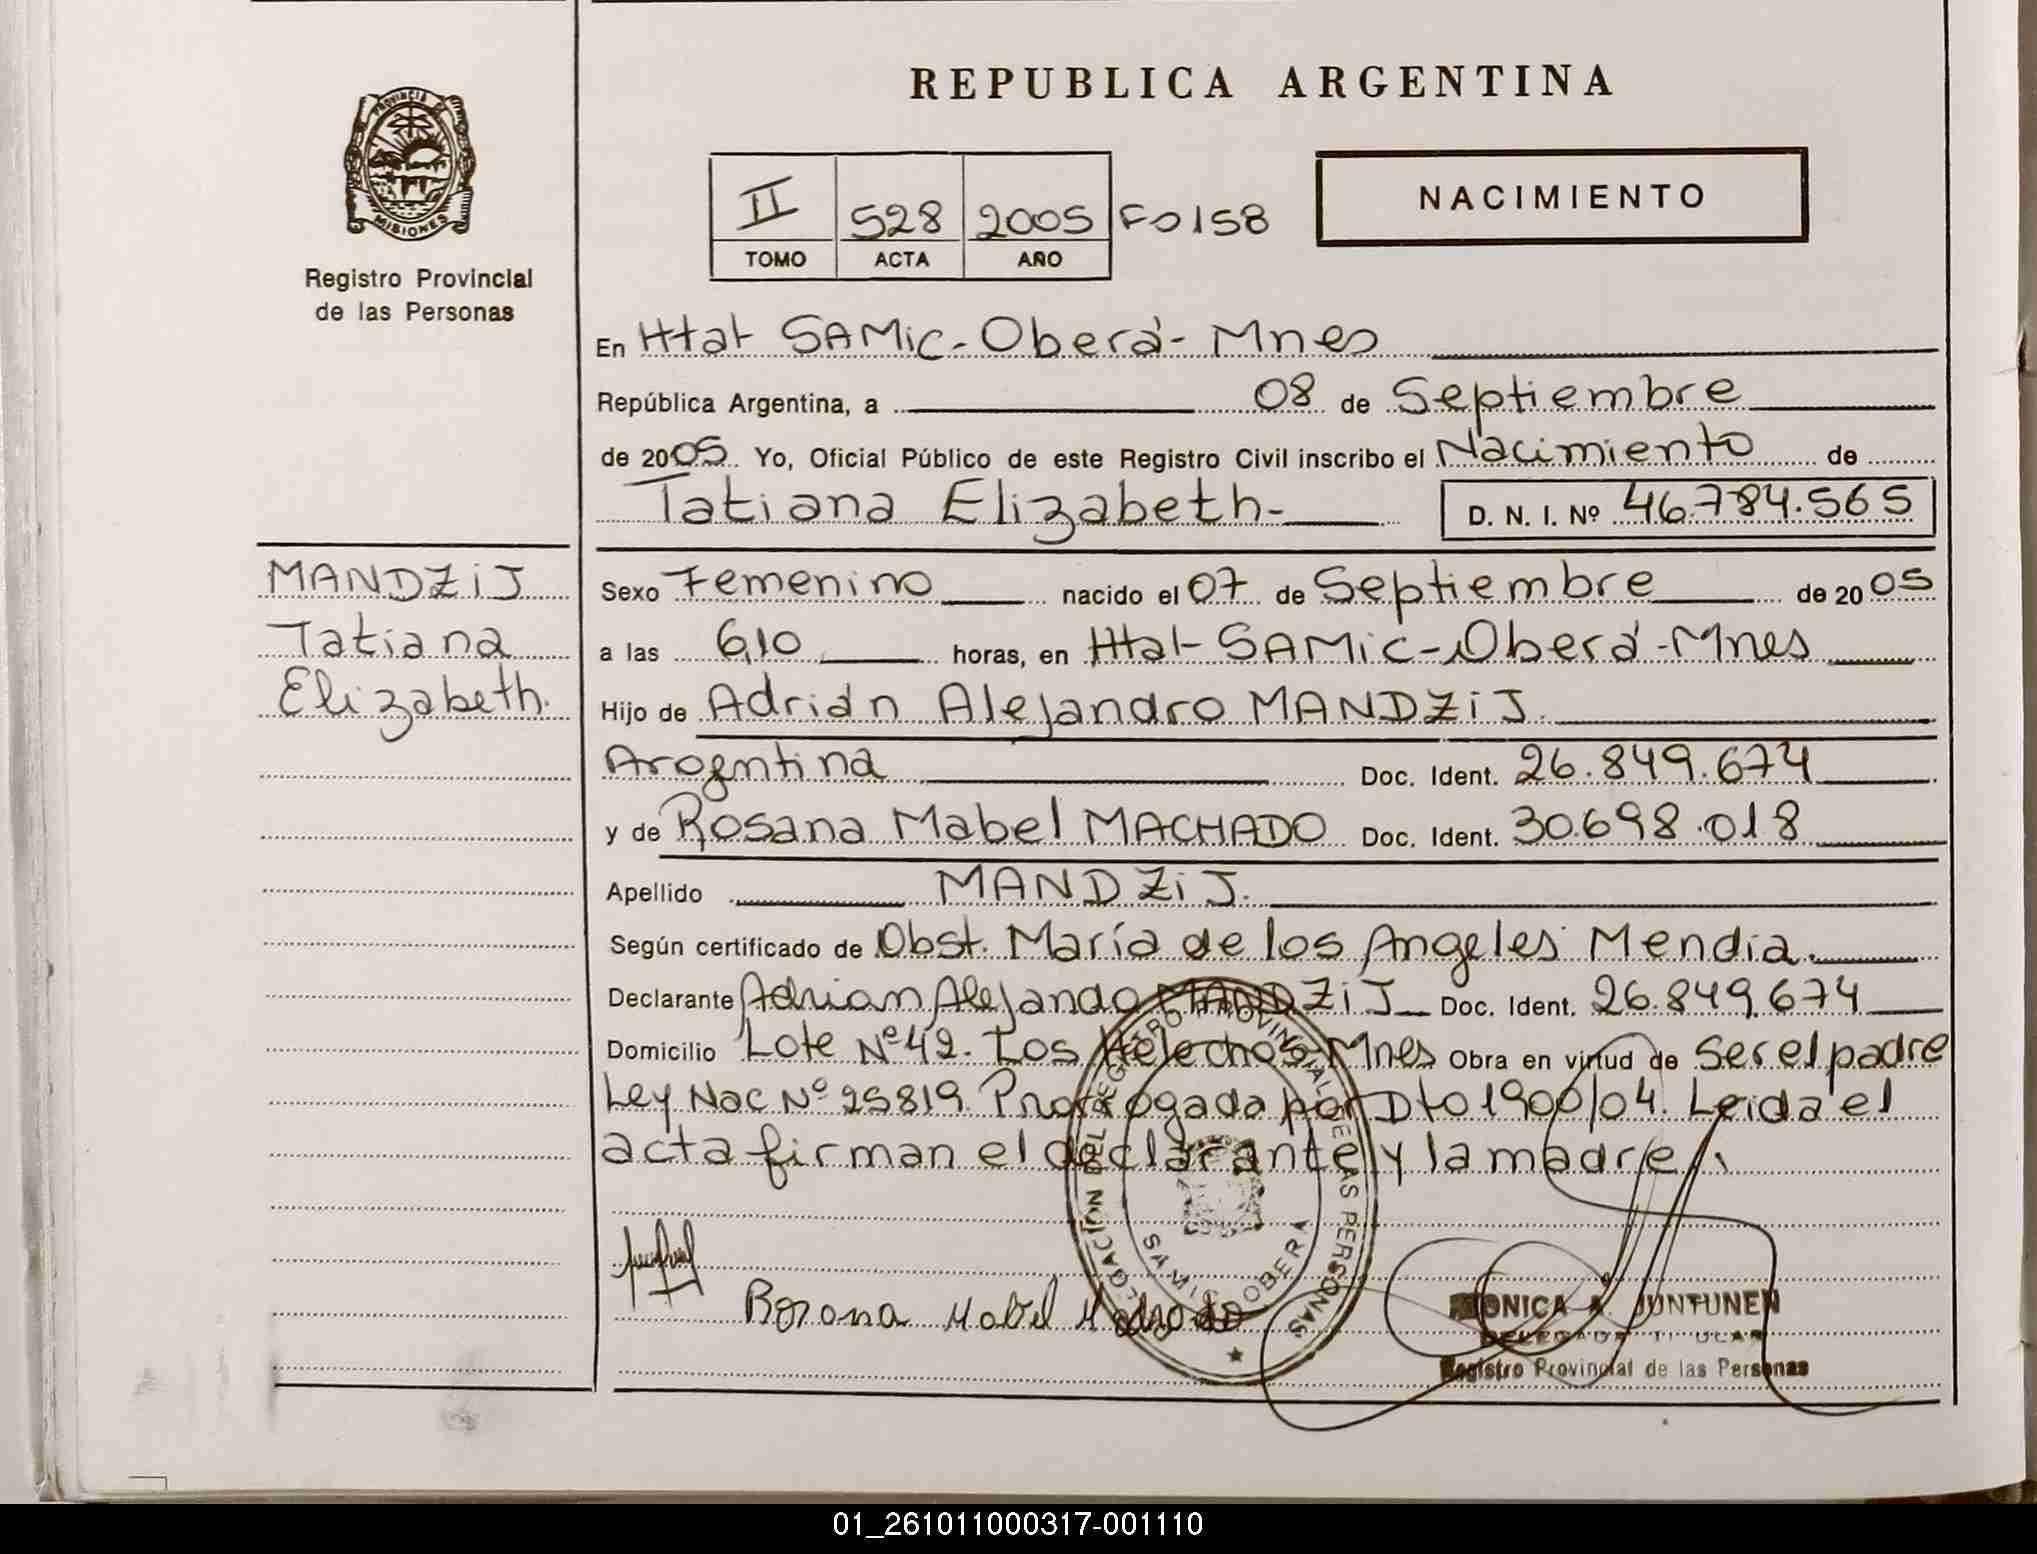 REPUBLICA ARGENTINA
PROVINCIA DE
MISIONES
Registro Provincial
de las Personas
II 528 2005 Fo 158
TOMO ACTA AÑO
NACIMIENTO
En Htal SAMic-Oberá-Mnes
República Argentina, a 08 de Septiembre
de 2005 Yo, Oficial Público de este Registro Civil inscribo el Nacimiento de
Tatiana Elizabeth- D. N. I. Nº 46.784.565
MANDZiJ
Tatiana
Elizabeth.
Sexo Femenino nacido el 07 de Septiembre de 2005
a las 6,10 horas, en Htal-SAMic-Oberá-Mnes
Hijo de Adrián Alejandro MANDZiJ.
Arogntina Doc. Ident. 26.849.674
y de Rosana Mabel MACHADO Doc. Ident. 30.698.018
Apellido MANDZiJ.
Según certificado de Obst. María de los Angeles Mendia.
Declarante Adrian Alejando MANDZiJ Doc. Ident. 26.849.674
Domicilio Lote Nº 42. Los Helechos-Mnes Obra en virtud de Ser el padre
Ley Nac Nº 25819. Prorrogada por Dto 1900/04. Leida el
acta firman el declarante y la madre.
DELEGACION DEL REGISTRO PROVINCIAL DE LAS PERSONAS
OBERA
Rosana Mabel Machado
MONICA A. JUNTUNEN
DELEGADA TITULAR
Registro Provincial de las Personas
01_261011000317-001110